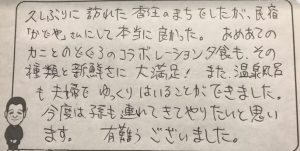 久しぶりに訪れた香住のまちでしたが、民宿
「かどや」さんにして本当に良かった。おめあての
カニとのどぐろのコラボレーション夕食も、その
種類と新鮮さに大満足！また、温泉風呂
も夫婦でゆっくりはいることができました。
今度は孫も連れてきてやりたいと思い
ます。有難うございました。